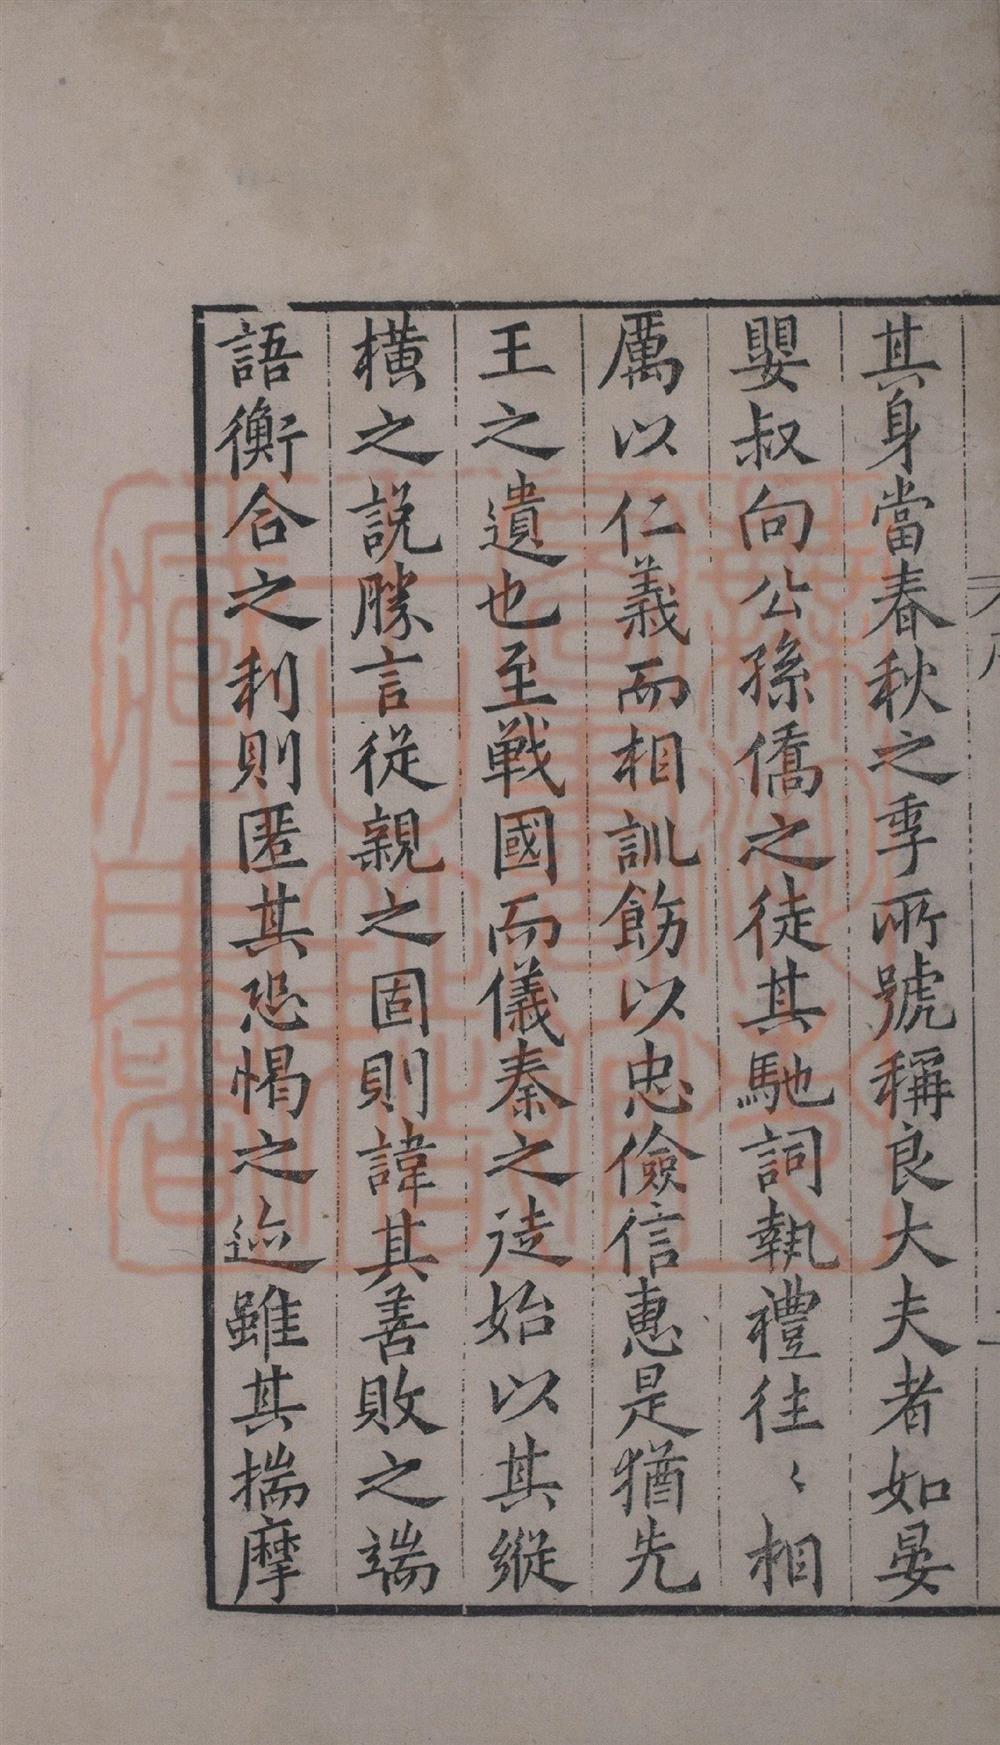 其身當春秋之季所號稱良大夫者如晏
嬰叔向公孫僑之徒其馳詞執禮往〻相
厲以仁義而相訓飭以忠儉信惠是猶先
王之遺也至戰國而儀秦之徒始以其縱
橫之說勝言從親之固則諱其善敗之端
語衡合之利則匿其恐愒之迹雖其揣摩